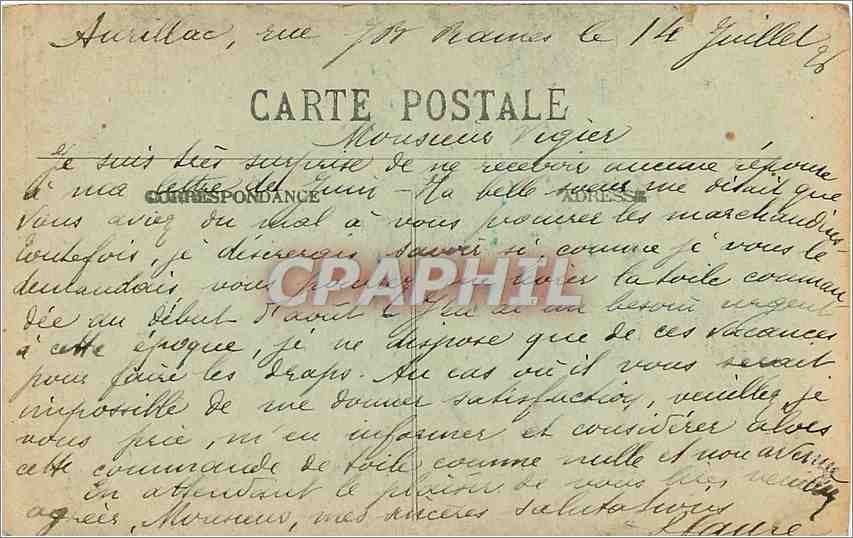 Aurillac, rue JB Rames le 14 Juillet
CARTE POSTALE
Monsieur Vigier
Je suis très surprise de ne recevoir aucune réponse
à ma lettre de Juin - Ma belle soeur me disait que
CORRESPONDANCE ADRESSE
vous aviez du mal à vous procurer les marchandises
toutefois, je désirerais savoir si, comme je vous le
demandais vous pourrez la toile comman
CPAPHIL
dée au début d'août j'en ai un besoin urgent
à cette époque, je ne dispose que de ces vacances
pour faire les draps. Au cas où il vous serait
impossible de me donner satisfaction, veuillez, je
vous prie, m'en informer et considérer alors
cette commande de toile comme nulle et non avenue
En attendant le plaisir de vous lire, veuillez
agréer, Monsieur, mes sincères salutations